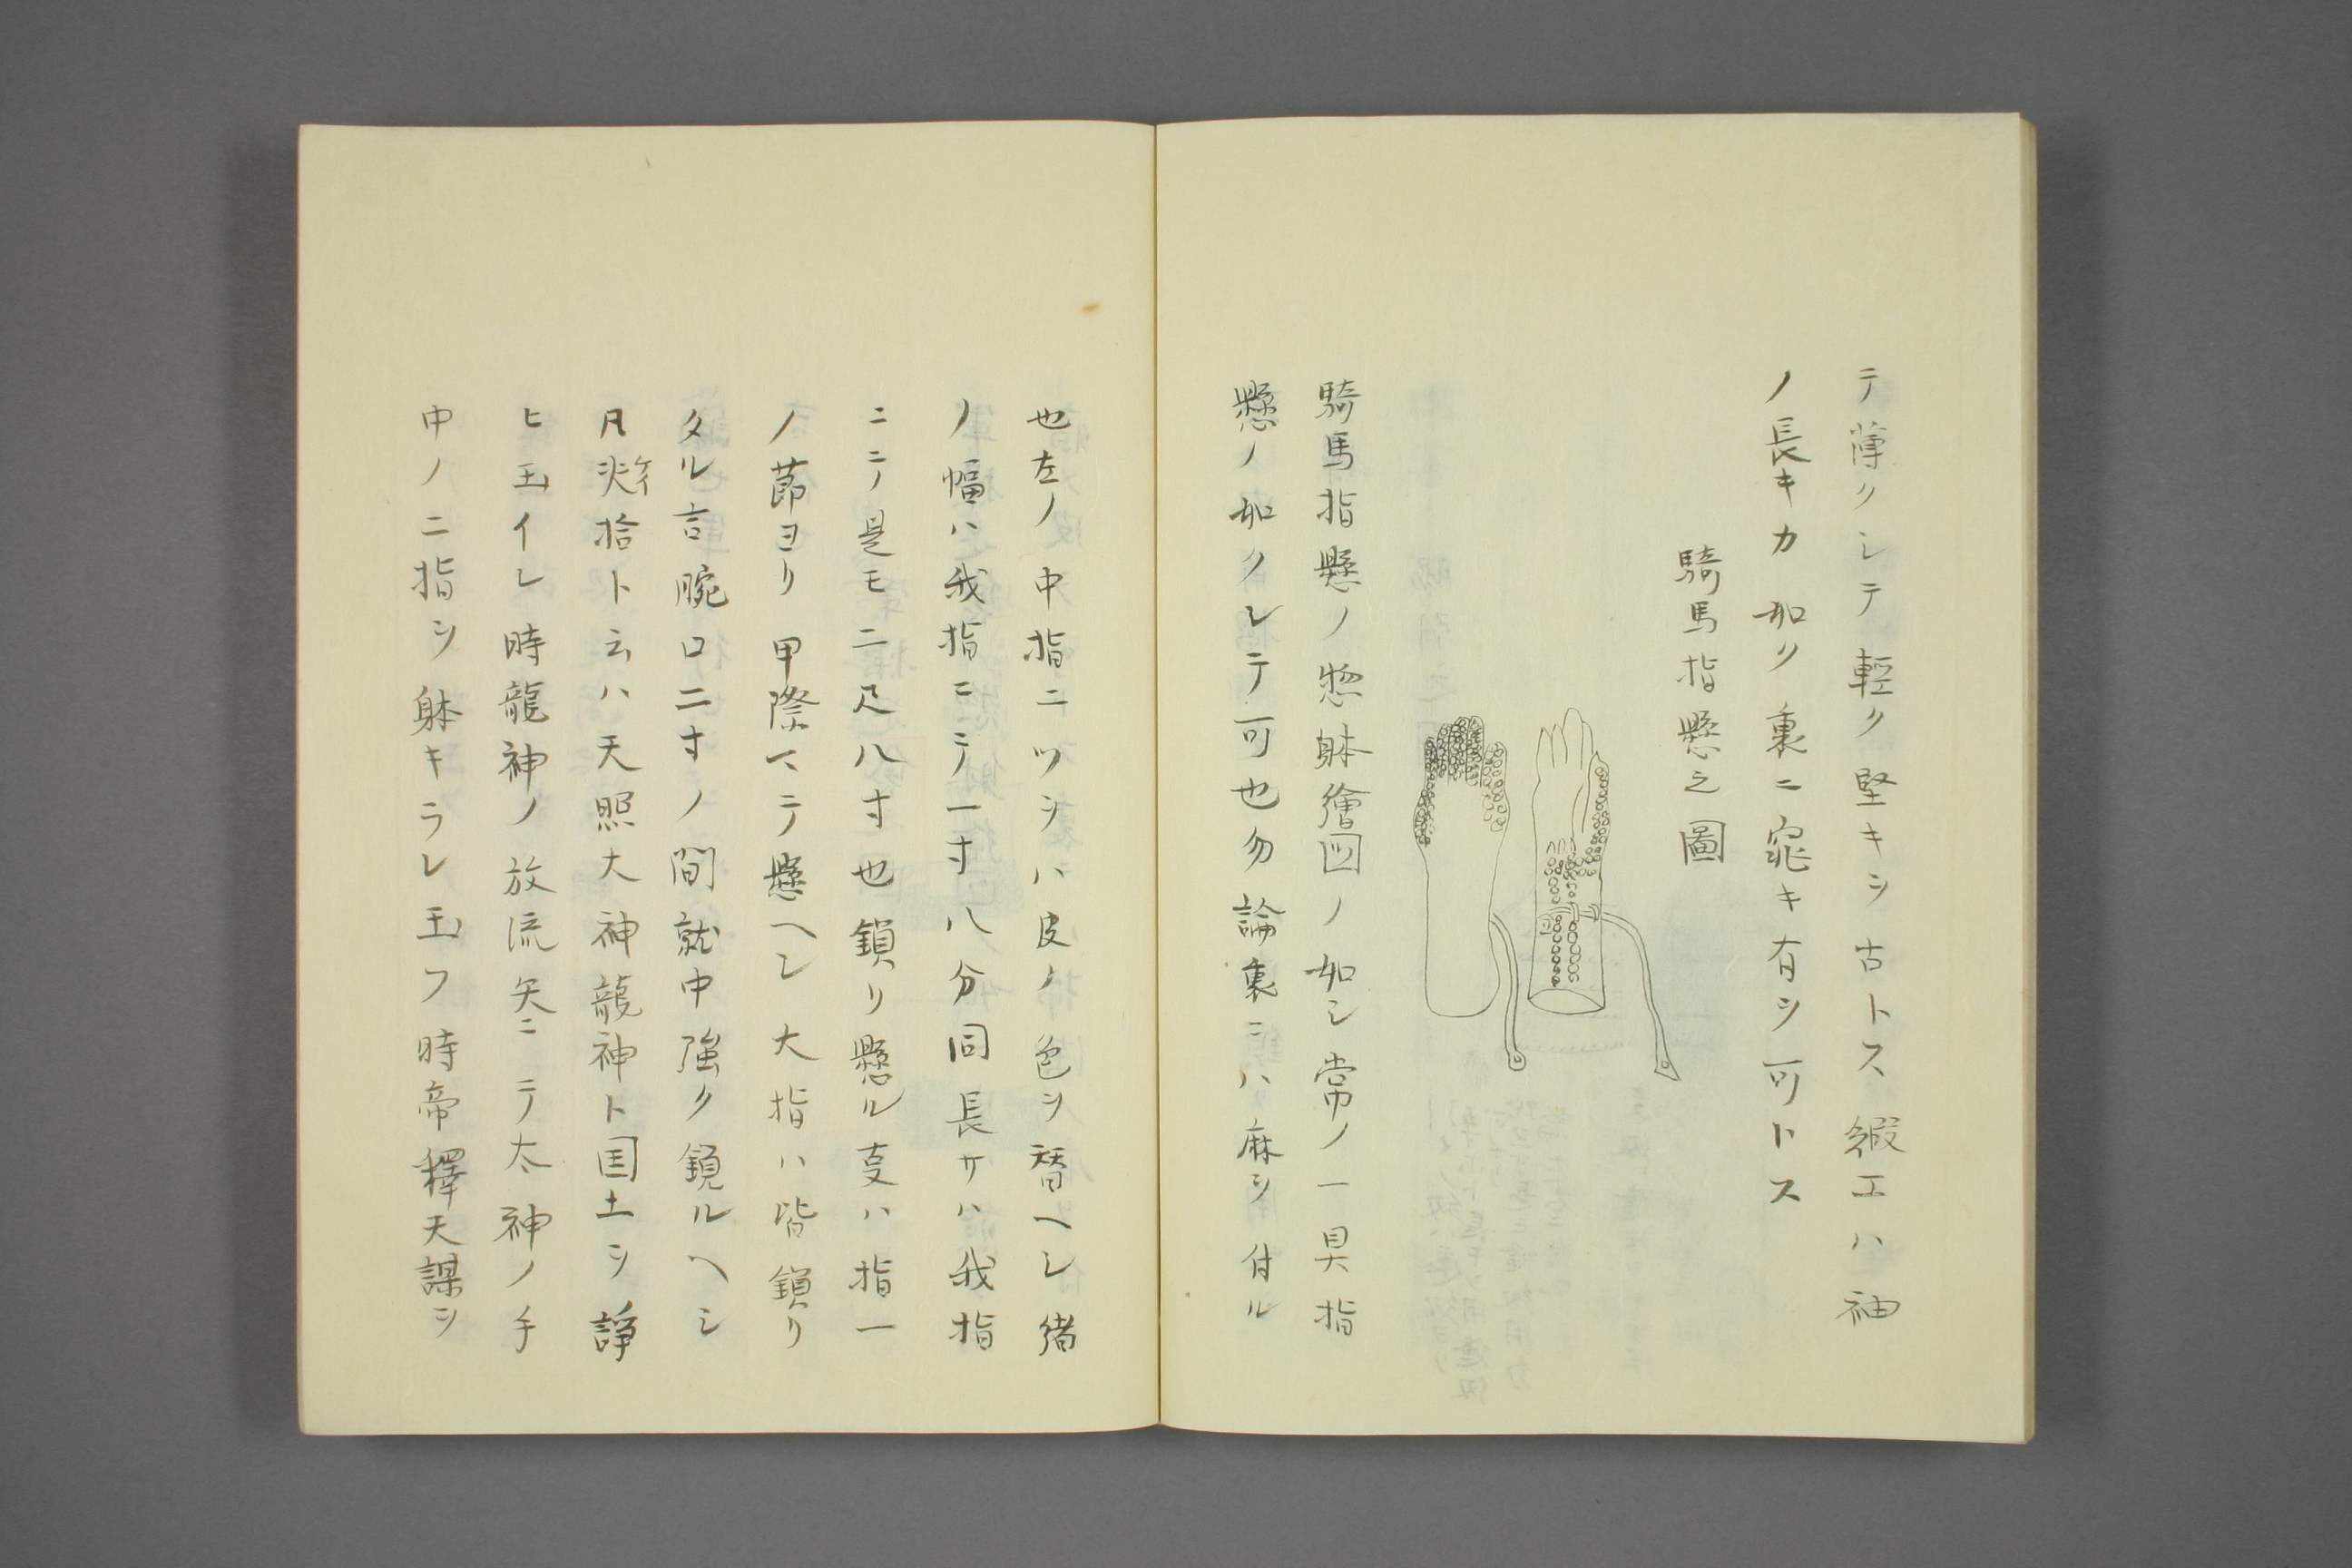 テ薄クシテ輕ク堅キヲ古トス緞エハ袖
ノ長キカ如ク裏ニ窕キ有ヲ可トス
騎馬指懸之圖
騎馬指懸ノ惣躰繪図ノ如シ常ノ一具指
懸ノ如クシテ可也勿論裏ニハ麻ヲ付ル
也左ノ中指ニツヲハ皮ノ色ヲ替ヘシ緒
ノ幅ハ我指ニテ一寸八分同長サハ我指
ニテ是モ二尺八寸也鎖リ懸ル叓ハ指一
ノ莭ヨリ甲際マテ懸ヘシ大指ハ皆鎖リ
タル吉腕口二寸ノ間就中強ク鎖ルヘシ
凡拾ト云ハ天照大神龍神ト国土ヲ諍
ヒ玉イシ時龍神ノ放流矢ニテ太神ノ手
中ノ二指ヲ躰キラレ玉フ時帝釋天謀ヲ